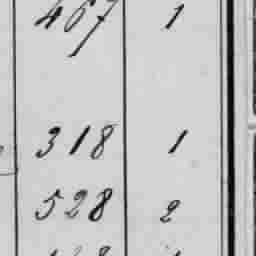 467 1
318 1
528 2